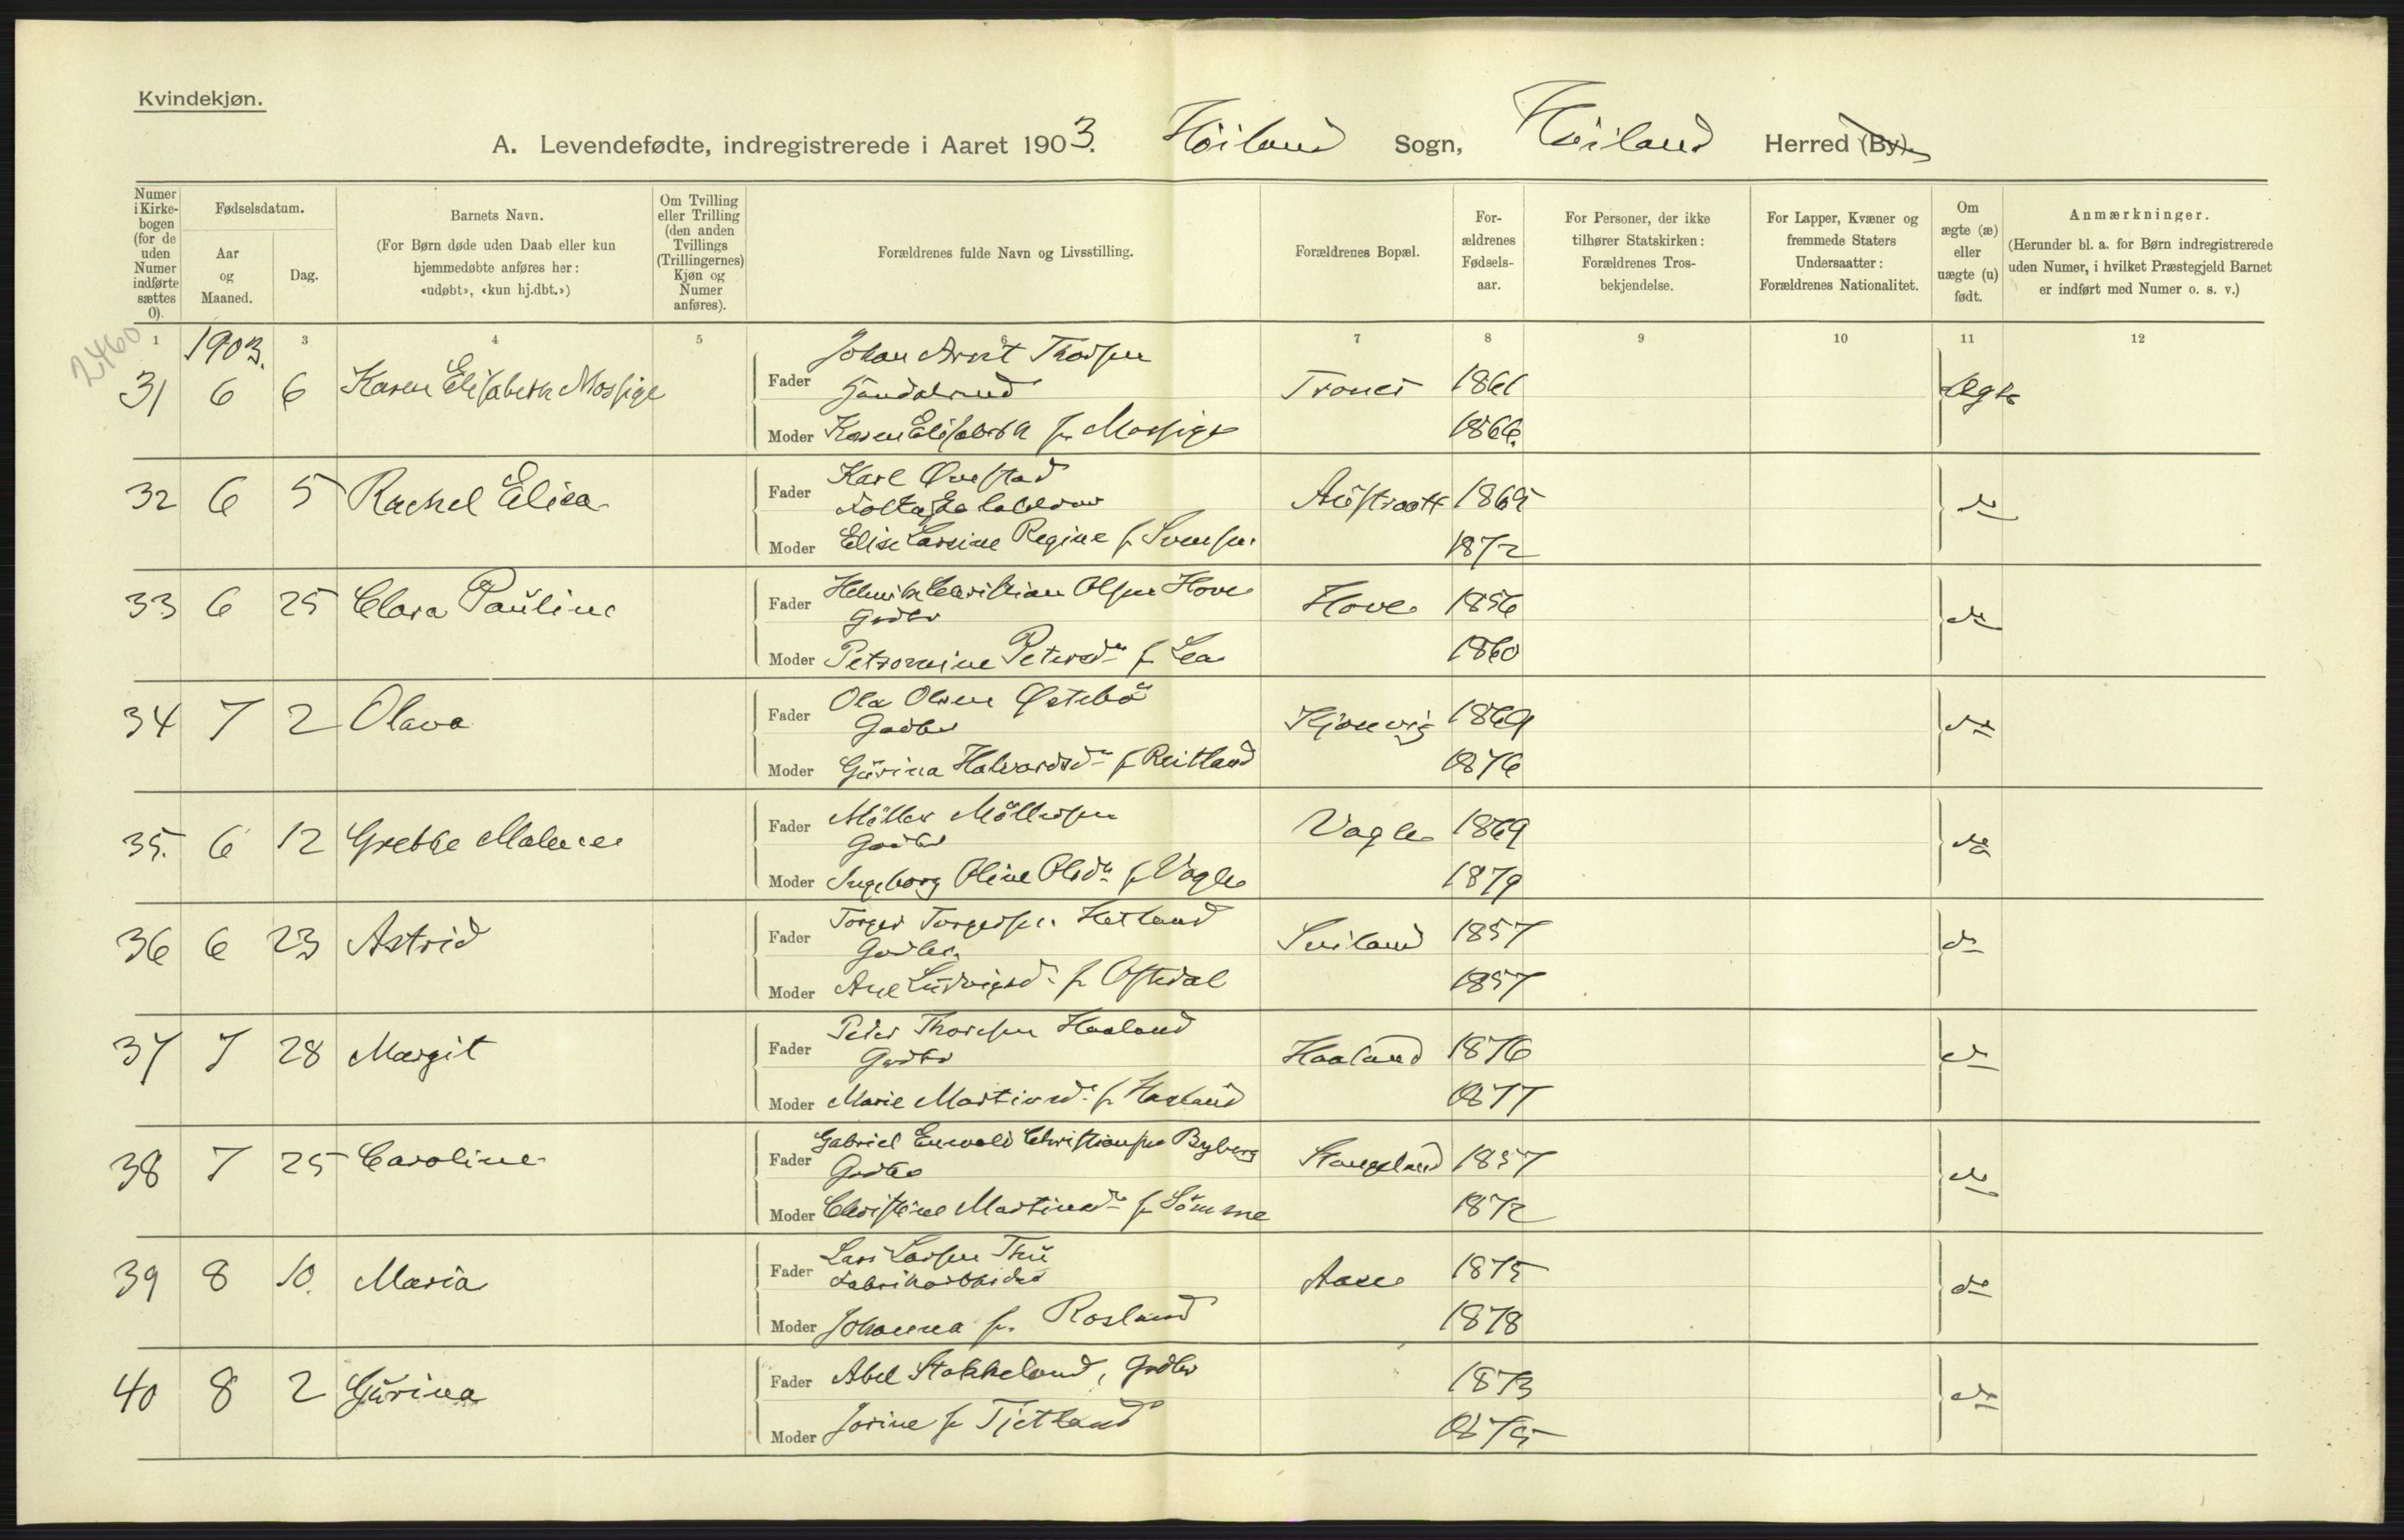 Kvindekjøn.
A. Levendefødte, indregistrerede i Aaret 1903. Höiland Sogn, Höiland Herred (By).
Numer i Kirkebogen (for de uden Numer indførte sættes 0).
Fødselsdatum.
Aar og Maaned.
Dag.
Barnets Navn.
(For Børn døde uden Daab eller kun hjemmedøbte anføres her: «udøbt», «kun hj.dbt.»)
Om Tvilling eller Trilling (den anden Tvillings (Trillingernes) Kjøn og Numer anføres).
Forældrenes fulde Navn og Livsstilling.
Forældrenes Bopæl.
Forældrenes Fødselsaar.
For Personer, der ikke tilhører Statskirken: Forældrenes Trosbekjendelse.
For Lapper, Kvæner og fremmede Staters Undersaatter: Forældrenes Nationalitet.
Om ægte (æ) eller uægte (u) født.
Anmærkninger.
(Herunder bl. a. for Børn indregistrerede uden Numer, i hvilket Præstegjeld Barnet er indført med Numer o. s. v.)
1 3 4 5 6 7 8 9 10 11 12
2460
1903.
31 6 6 Karen Elisabeth Mossige
Fader Johan Arnt Thorsen
Trones 1861 Ægte
Moder Karen Elisabeth f. Mossige 1866.
32 6 5 Rachel Elisa
Fader Karl Qvestad
Austraatt 1865 do
Moder Elise Larsine Regine f. Svensen 1872
33 6 25 Clara Pauline
Fader Helmik Christian Olsen Hove
Grdbr
Hove 1856 do
Moder Petromine Petersdr f. Lea 1860
34 7 2 Olava
Fader Ola Olsen Østebö
Gardbr
Kjosvig 1869 do
Moder Gurina Halvardsdr f. Reitland 1876
35. 6 12 Grethe Malene
Fader Möller Möllersen
Gardbr
Vagle 1869 do
Moder Ingeborg Oline Olsdr f. Vagle 1879
36 6 23 Astrid
Fader Torger Torgersen Hetland
Gardbr.
Sviland 1857 do
Moder Ane Ludvigsd. f. Oftedal 1857
37 7 28 Margit
Fader Peder Thorsen Haaland
Gardbr
Haaland 1876 do
Moder Marie Martinsd. f. Haaland 1877
38 7 25 Caroline
Fader Gabriel Enevald Christiansen Byberg
Gardbr
Stangeland 1857 do
Moder Christine Martinsdr f. Sömme 1872
39 8 10. Maria
Fader Lars Larsen Thu
Fabrikarbeider
Aase 1875 do
Moder Johanna f. Rosland 1878
40 8 2 Gurina
Fader Abel Stokkeland, Grdbr 1873 do
Moder Jorine f. Tjetland 1875